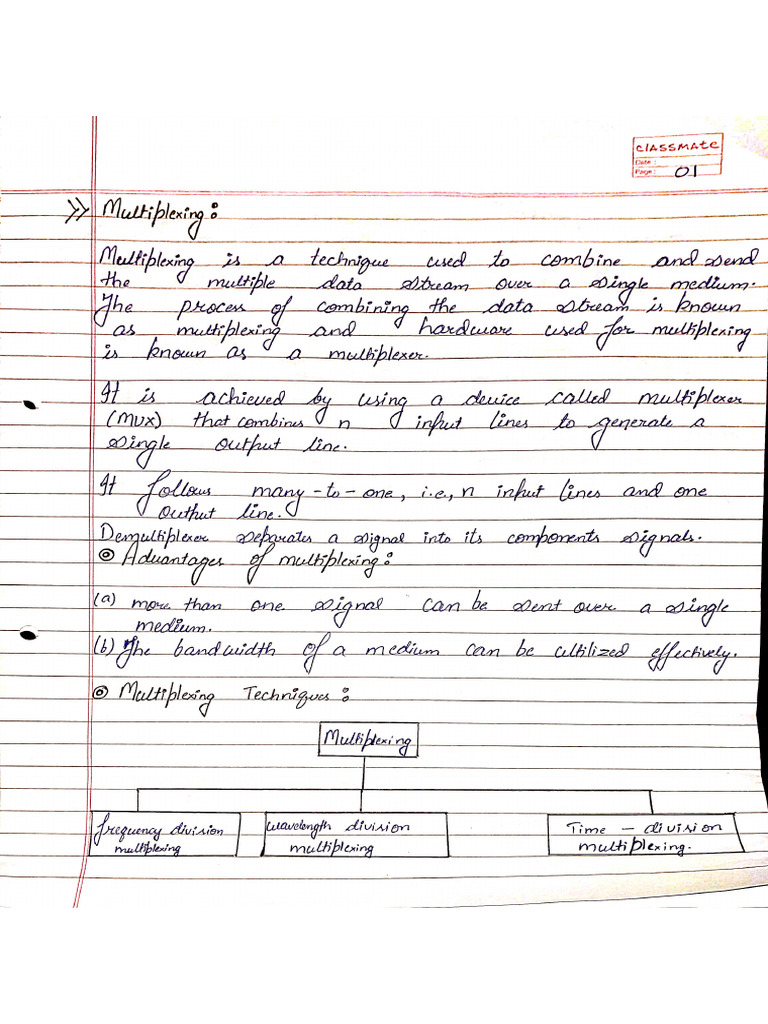 classmate
Date :
Page : 01
>> Multiplexing :
Multiplexing is a technique used to combine and send
the multiple data stream over a single medium.
The process of combining the data stream is known
as multiplexing and hardware used for multiplexing
is known as a multiplexer.
It is achieved by using a device called multiplexer
(MUX) that combines n input lines to generate a
single output line.
It follows many-to-one, i.e., n input lines and one
output line.
Demultiplexer separates a signal into its components signals.
◎ Advantages of multiplexing :
(a) more than one signal can be sent over a single
medium.
(b) The bandwidth of a medium can be utilized effectively.
◎ Multiplexing Techniques :
Multiplexing
frequency division
multiplexing
wavelength division
multiplexing
Time - division
multiplexing.